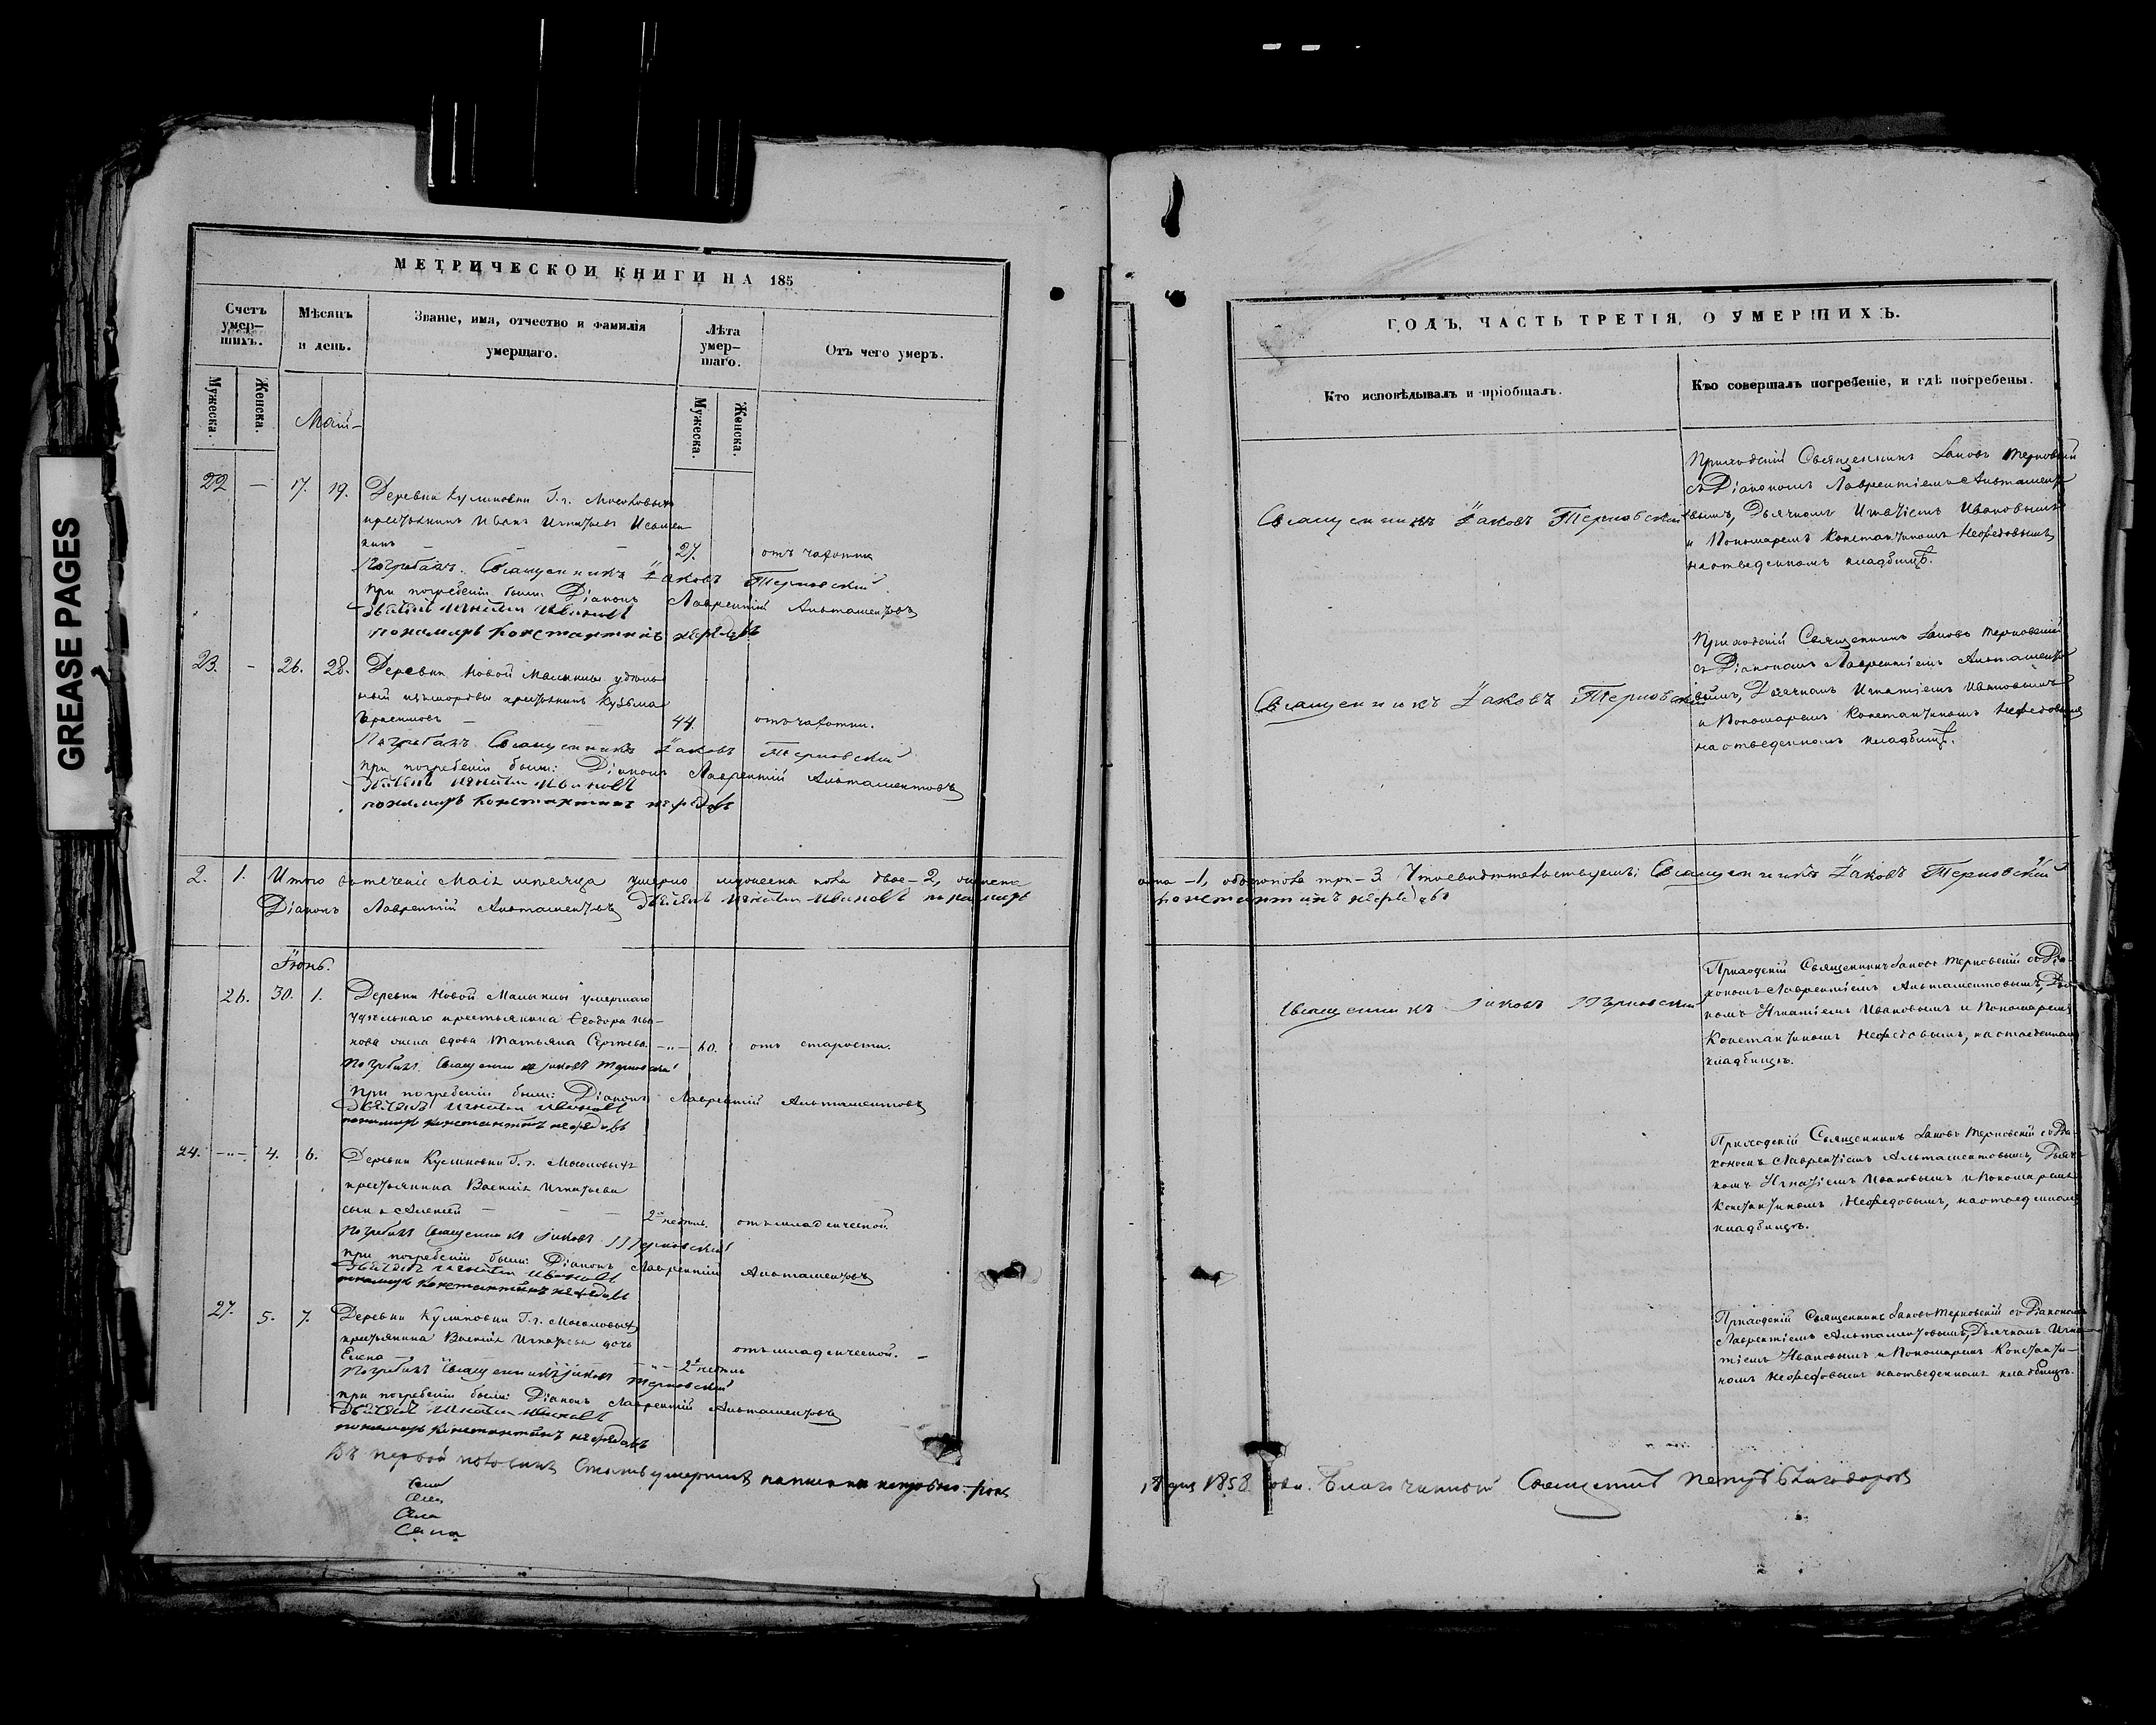 GREASE PAGES
МЕТРИЧЕСКОЙ КНИГИ НА 185
Счетъ умер-
шихъ.
Мѣсяцъ
и день.
Званіе, имя, отчество и фамилія
умершаго.
Лѣта
умер-
шаго.
Отъ чего умеръ.
Мужеска.
Женска.
Мужеска.
Женска.
Май
22 — 17. 19. Деревни Куликовки Г. г. Мосоловыхъ
крестьянинъ Иванъ Игнатьевъ
27. отъ чахотки
Погребалъ. Священникъ Іаковъ Терновскій
при погребеніи были: Діаконъ Лаврентій Альтаментовъ
Дьячекъ Игнатій Ивановъ
пономарь Константинъ Нефедовъ
23. - 26. 28. Деревни Новой Малыклы удѣль
крестьянинъ Кузьма
44. отъ чахотки.
Погребалъ Священникъ Іаковъ Терновскій
при погребеніи были: Діаконъ Лаврентій Альтаментовъ
Дьячекъ Игнатій Ивановъ
пономарь Константинъ Нефедовъ
2. 1. Итого въ теченіе Маія мѣсяца умерло мужеска пола двое-2, женска
Діаконъ Лаврентій Альтаментовъ Дьячекъ Игнатій Ивановъ пономарь
Іюнь.
26. 30. 1. Деревни Новой Малыклы умершаго
удѣльнаго крестьянина Ѳеодора Ива-
нова жена вдова Татьяна Сергѣева — 60. отъ старости.
Погребалъ. Священникъ Іаковъ Терновскій
при погребеніи были: Діаконъ Лаврентій Альтаментовъ
Дьячекъ Игнатій Ивановъ
пономарь Константинъ Нефедовъ
24. -"-. 4. 6. Деревни Куликовки Г. г. Мосоловыхъ
крестьянина Василія Игнатьева
сынъ Алексей 2хъ недѣль. отъ младенческой
Погребалъ Священникъ Іаковъ Терновскій
при погребеніи были: Діаконъ Лаврентій Альтаментовъ
Дьячекъ Игнатій Ивановъ
пономарь Константинъ Нефедовъ
27. 5. 7. Деревни Куликовки Г. г. Мосоловыхъ
крестьянина Василія Игнатьева дочь
Елена 2хъ недѣль отъ младенческой.
Погребалъ Священникъ Іаковъ Терновскій
при погребеніи были: Діаконъ Лаврентій Альтаментовъ
Дьячекъ Игнатій Ивановъ
пономарь Константинъ Нефедовъ
Въ первой половинѣ
ГОДЪ, ЧАСТЬ ТРЕТІЯ, О УМЕРШИХЪ.
Кто исповѣдывалъ и пріобщалъ.
Кто совершалъ погребеніе, и гдѣ погребены.
Священникъ Іаковъ Терновскій
Приходскій Священникъ Іаковъ Терновскій
съ Діакономъ Лаврентіемъ Альтаменто
вымъ, Дьячкомъ Игнатіемъ Ивановымъ
и Пономаремъ Константиномъ Нефедовымъ
на отведенномъ кладбищѣ.
Священникъ Іаковъ Терновскій
Приходскій Священникъ Іаковъ Терновскій
съ Діакономъ Лаврентіемъ Альтаменто
вымъ, Дьячкомъ Игнатіемъ Ивановымъ
и Пономаремъ Константиномъ Нефедовымъ
на отведенномъ кладбищѣ.
одна -1, обоего пола три-3 Священникъ Іаковъ Терновскій
Константинъ Нефедовъ
Священникъ Іаковъ Терновскій
Приходскій Священникъ Іаковъ Терновскій съ Діа-
кономъ Лаврентіемъ Альтаментовымъ, Дьяч
комъ Игнатіемъ Ивановымъ и Пономаремъ
Константиномъ Нефедовымъ, на отведенномъ
кладбищѣ.
Приходскій Священникъ Іаковъ Терновскій съ Діа-
кономъ Лаврентіемъ Альтаментовымъ, Дьяч
комъ Игнатіемъ Ивановымъ и Пономаремъ
Константиномъ Нефедовымъ, на отведенномъ
кладбищѣ.
Приходскій Священникъ Іаковъ Терновскій съ Діакономъ
Лаврентіемъ Альтаментовымъ, Дьячкомъ Игна-
тіемъ Ивановымъ и Пономаремъ Константи-
номъ Нефедовымъ на отведенномъ кладбищѣ.
18 дня 1858 года. Благочинный Священникъ Петръ Благодаровъ